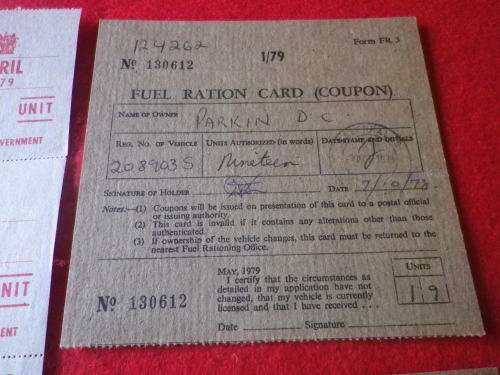 RIL
79
UNIT
VERNMENT
NIT
ENT
124262
Form FR. 3
Nº 130612
1/79
FUEL RATION CARD (COUPON)
NAME OF OWNER PARKIN D C
REG. NO. OF VEHICLE
UNITS AUTHORIZED (in words)
DATE-STAMP AND INITIALS
208903S
Nineteen
SIGNATURE OF HOLDER
DATE
Notes.—(1) Coupons will be issued on presentation of this card to a postal official
or issuing authority.
(2) This card is invalid if it contains any alterations other than those
authenticated.
(3) If ownership of the vehicle changes, this card must be returned to the
nearest Fuel Rationing Office.
MAY, 1979
UNITS
I certify that the circumstances as
detailed in my application have not
changed, that my vehicle is currently
licensed and that I have received . . .
19
Nº 130612
Date
Signature